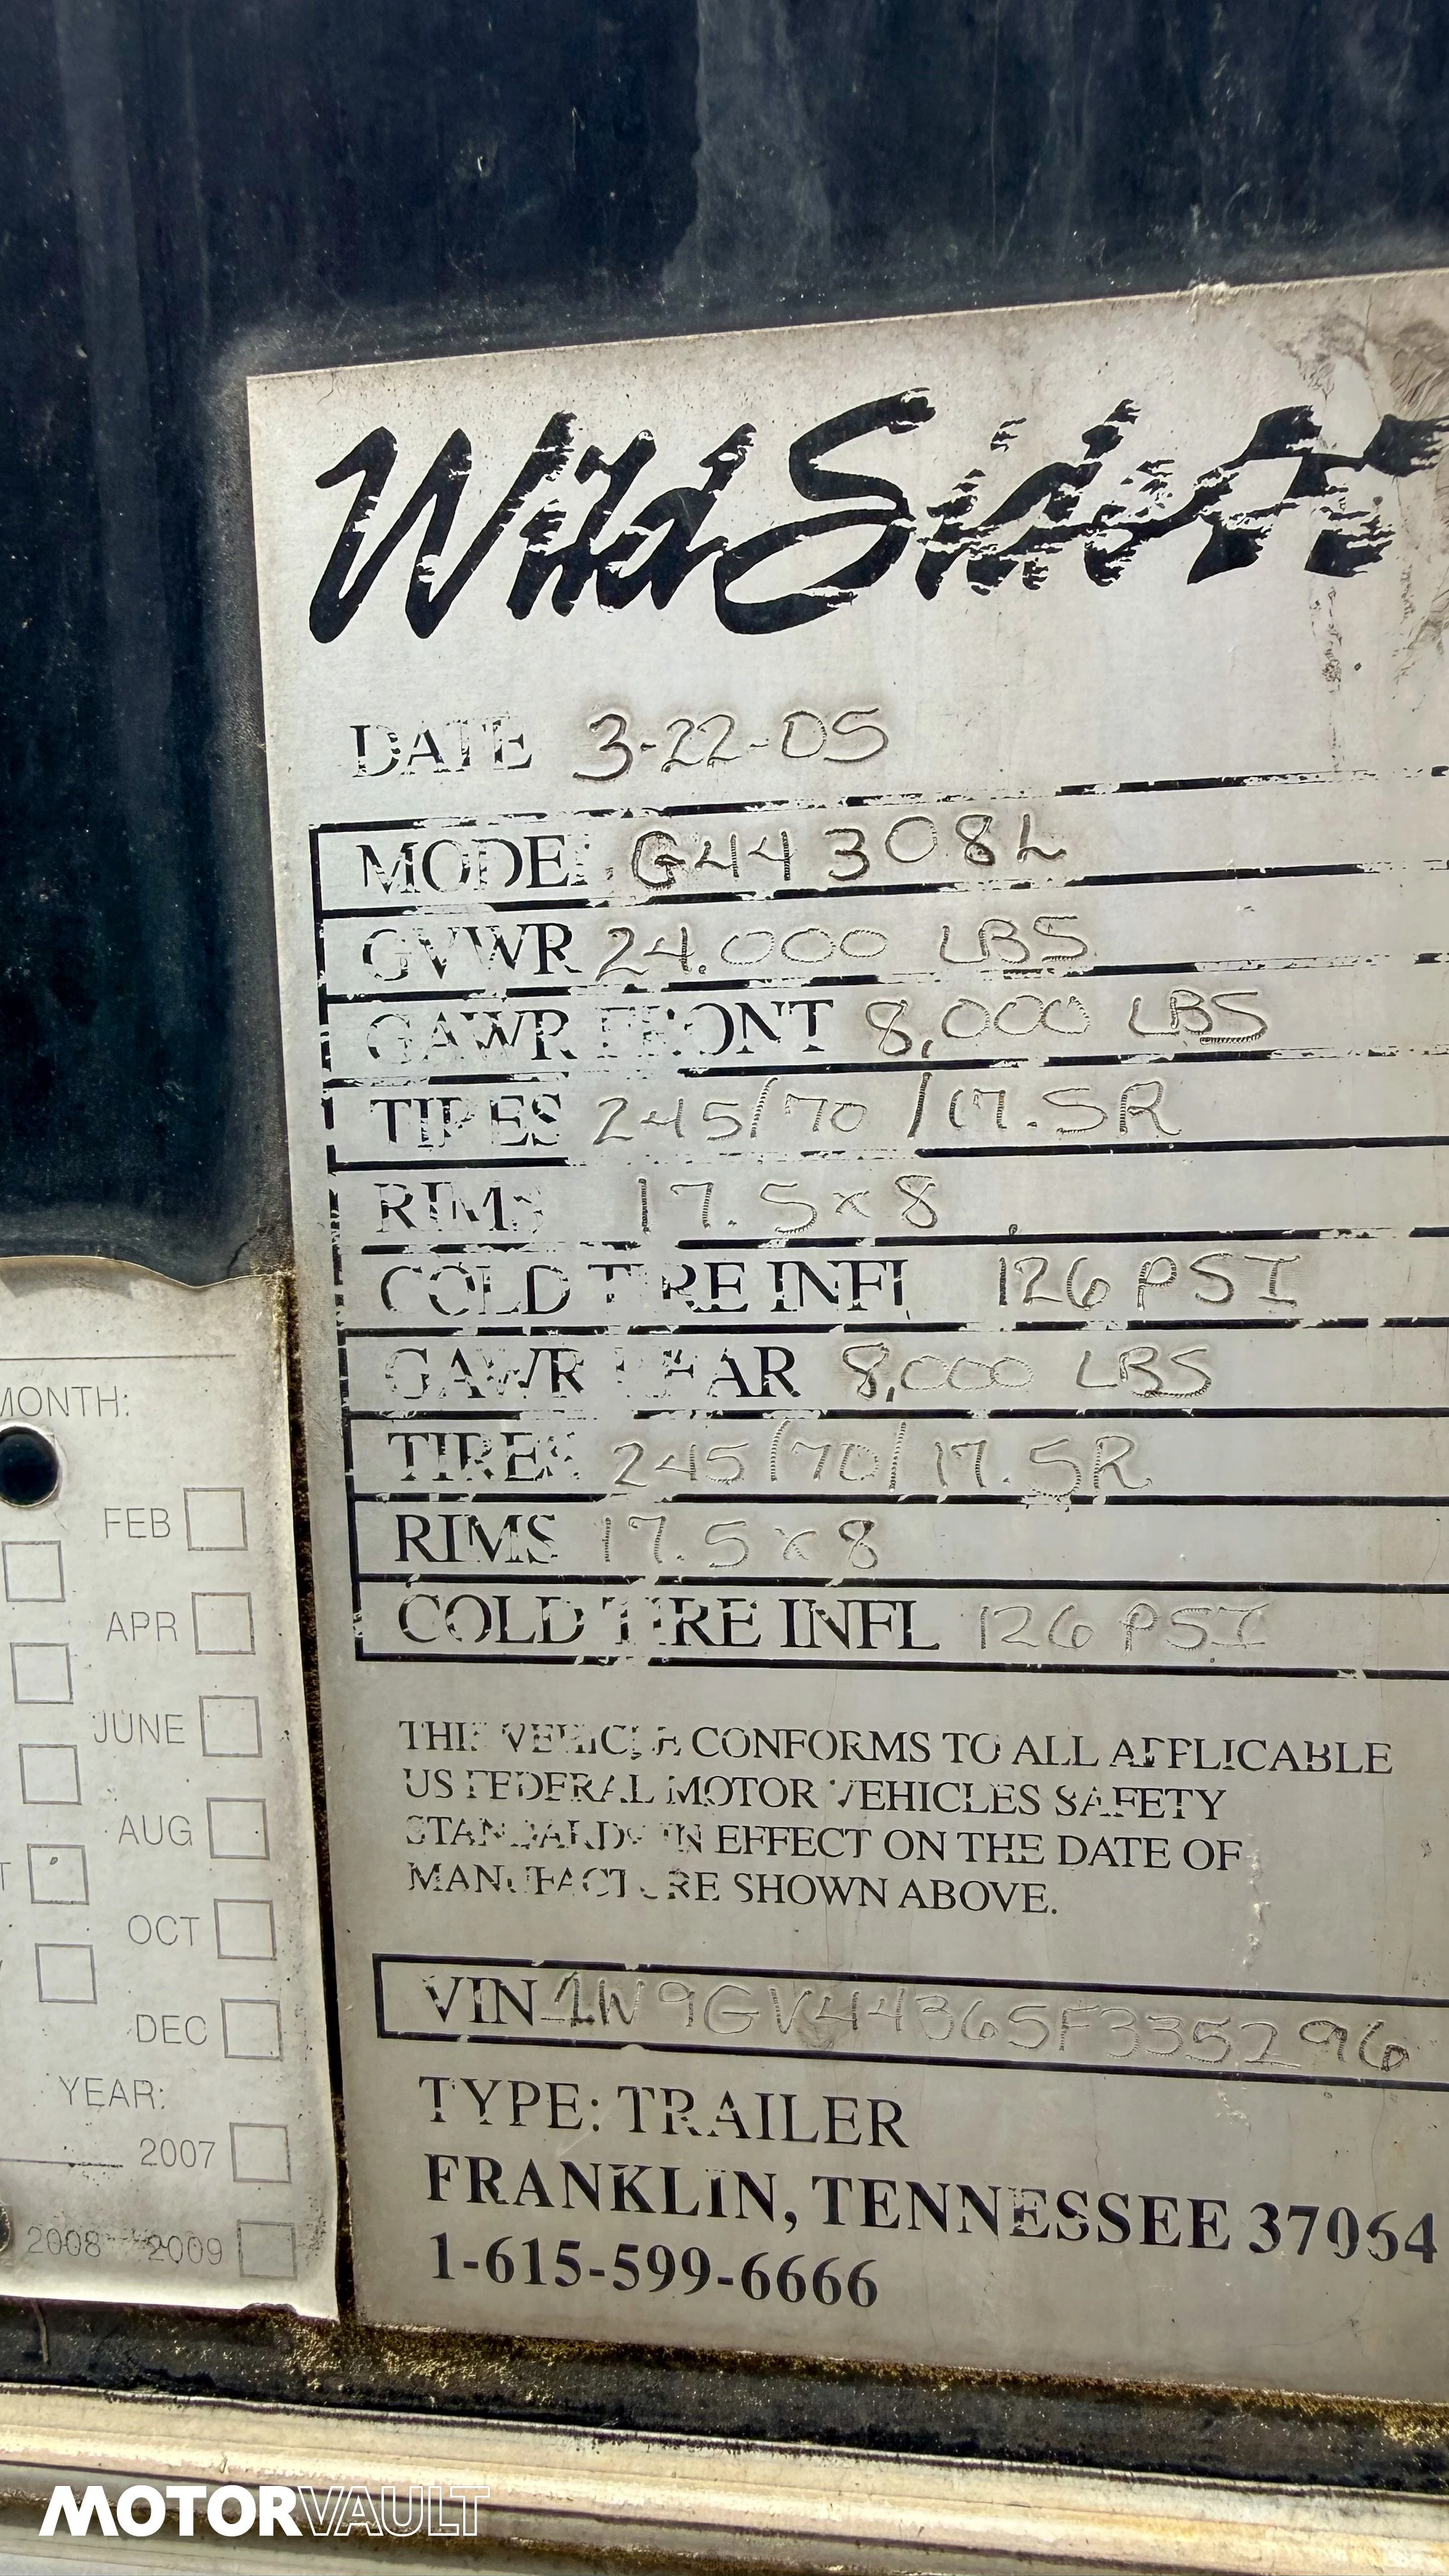 Wild Side
DATE 3-22-05
MODEL G44308L
GVWR 24,000 LBS
GAWR FRONT 8,000 LBS
TIRES 245/70/17.5R
RIMS 17.5x8
COLD TIRE INFL 126 PSI
GAWR REAR 8,000 LBS
TIRES 245/70/17.5R
RIMS 17.5x8
COLD TIRE INFL 126 PSI
THIS VEHICLE CONFORMS TO ALL APPLICABLE
US FEDERAL MOTOR VEHICLES SAFETY
STANDARDS IN EFFECT ON THE DATE OF
MANUFACTURE SHOWN ABOVE.
VIN 1W9GV44365F335296
TYPE: TRAILER
FRANKLIN, TENNESSEE 37064
1-615-599-6666
MONTH:
FEB
APR
JUNE
AUG
OCT
DEC
YEAR:
2007
2008 2009
MOTORVAULT